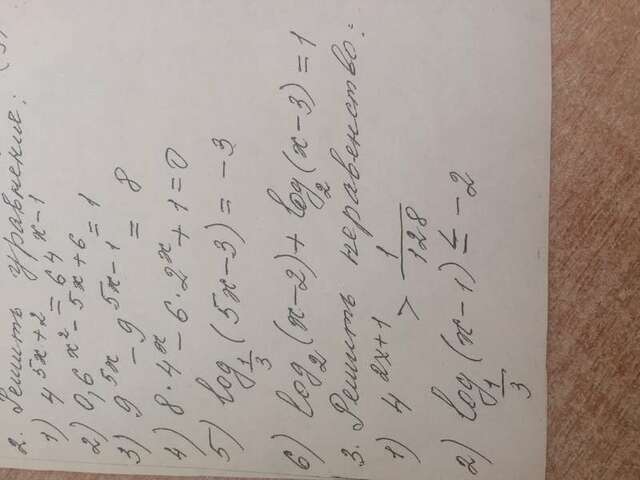 2. Решить уравнение:
1) 4^{5x+2} = 64^{x-1}
2) 0,6^{x²-5x+6} = 1
3) 9^{5x} - 9^{5x-1} = 8
4) 8·4^x - 6·2^x + 1 = 0
5) log_{1/3}(5x-3) = -3
6) log_2(x-2) + log_2(x-3) = 1
3. Решить неравенство:
1) 4^{2x+1} > 1/128
2) log_{1/3}(x-1) ≤ -2